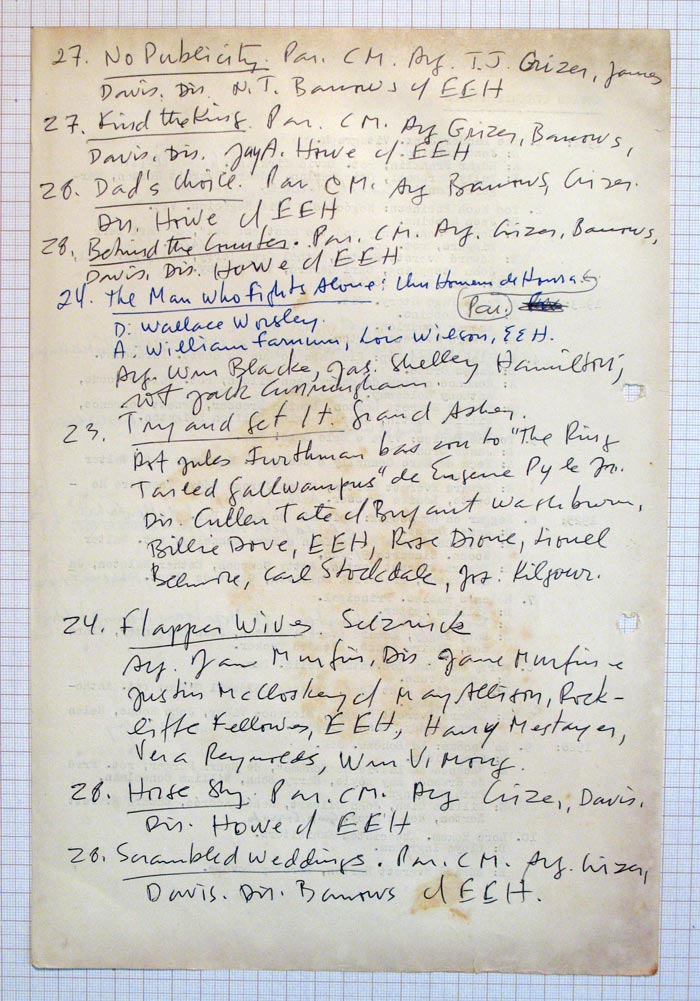 27. No Publicity. Par. CM. Arg. T.J. Crizer, James
Davis. Dir. N.T. Barrows c/ EEH
27. Kind the King. Par. CM. Arg Crizer, Barrows,
Davis. Dir. Jay A. Howe c/ EEH
28. Dad's Choice. Par. CM. Arg Barrows, Crizer.
Dir. Howe c/ EEH
28. Behind the Counter. Par. CM. Arg. Crizer, Barrows,
Davis. Dir. Howe c/ EEH
24. The Man Who Fights Alone: Um Homem de Honra
Par.
D: Wallace Worsley.
A: William Farnum, Lois Wilson, EEH.
Arg. Wm Blacke, Jas. Shelley Hamilton,
Rot Jack Cunningham.
23. Try and Get It. Grand Asher.
Rot Jules Furthman bas con to "The Ring
Tailed Gallwampus" de Eugene Pyle Jr.
Dir. Cullen Tate c/ Bryant Washburn,
Billie Dove, EEH, Rose Dione, Lionel
Belmore, Carl Stockdale, Jos. Kilgour.
24. Flapper Wives. Selznick
Arg. Jane Murfin, Dir. Jane Murfin e
Justin McCloskey c/ May Allison, Rock-
liffe Fellowes, EEH, Harry Mestayer,
Vera Reynolds, Wm V. Mong.
28. Horse Shy. Par. CM. Arg Crizer, Davis.
Dir. Howe c/ EEH
28. Scrambled Weddings. Par. CM. Arg. Crizer,
Davis. Dir. Barrows c/ EEH.